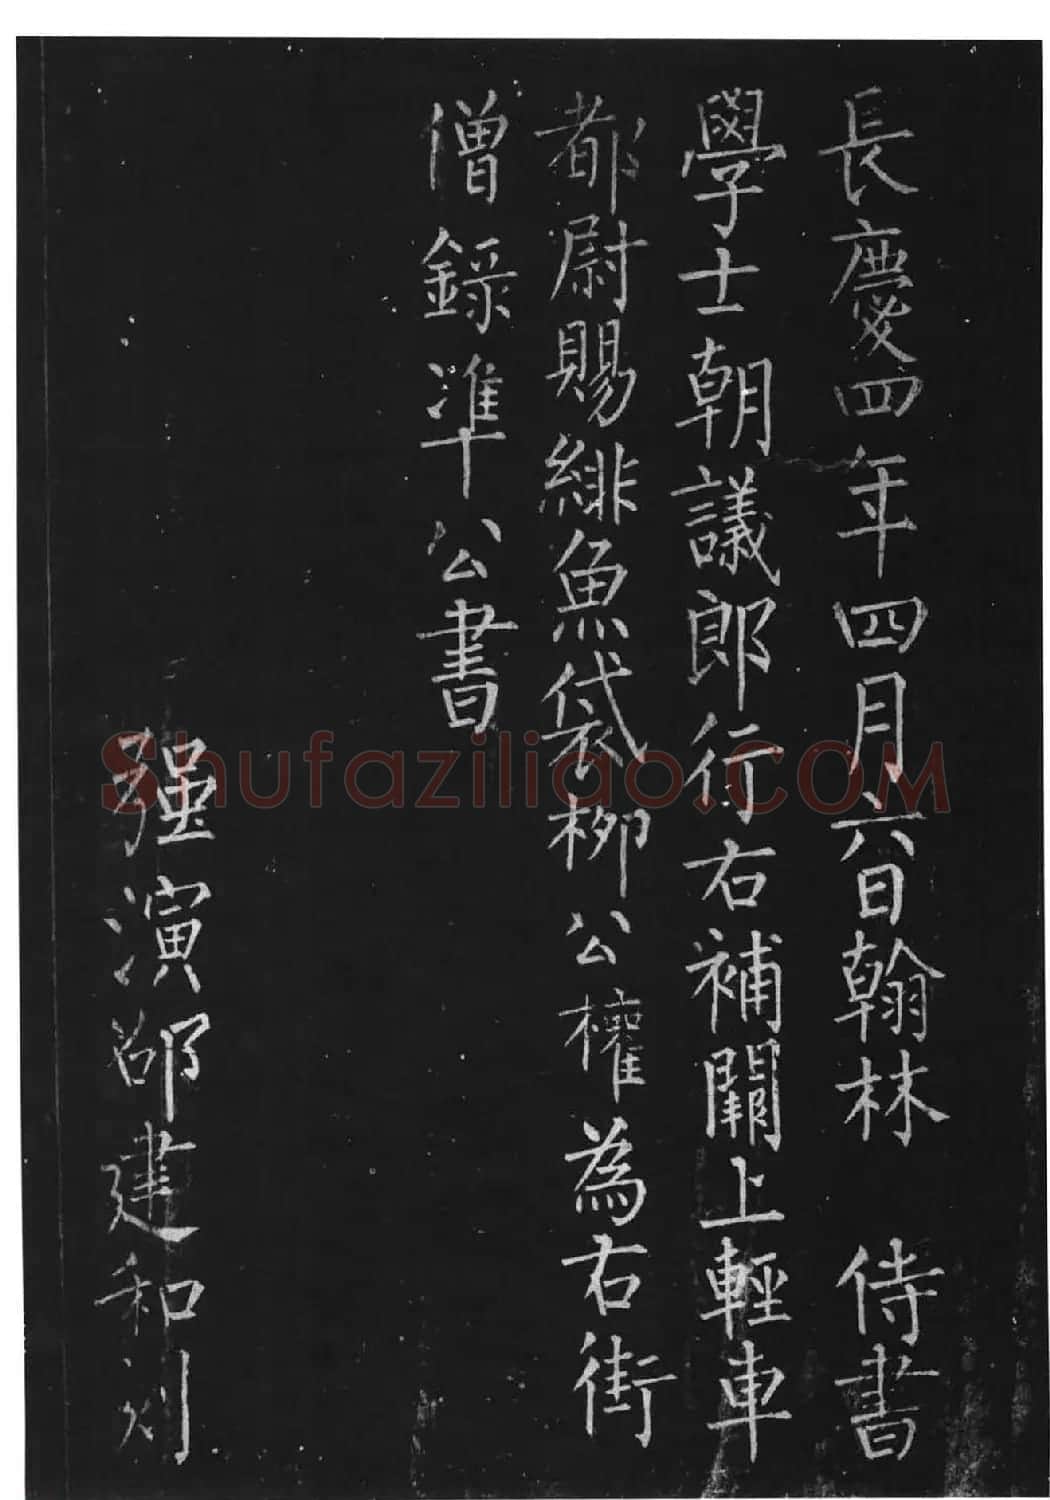 長慶四年四月六日翰林 侍書
學士朝議郎行右補闕上輕車
都尉賜緋魚袋柳公權為右街
僧錄準公書
强演邵建和刻
Shufaziliao.COM